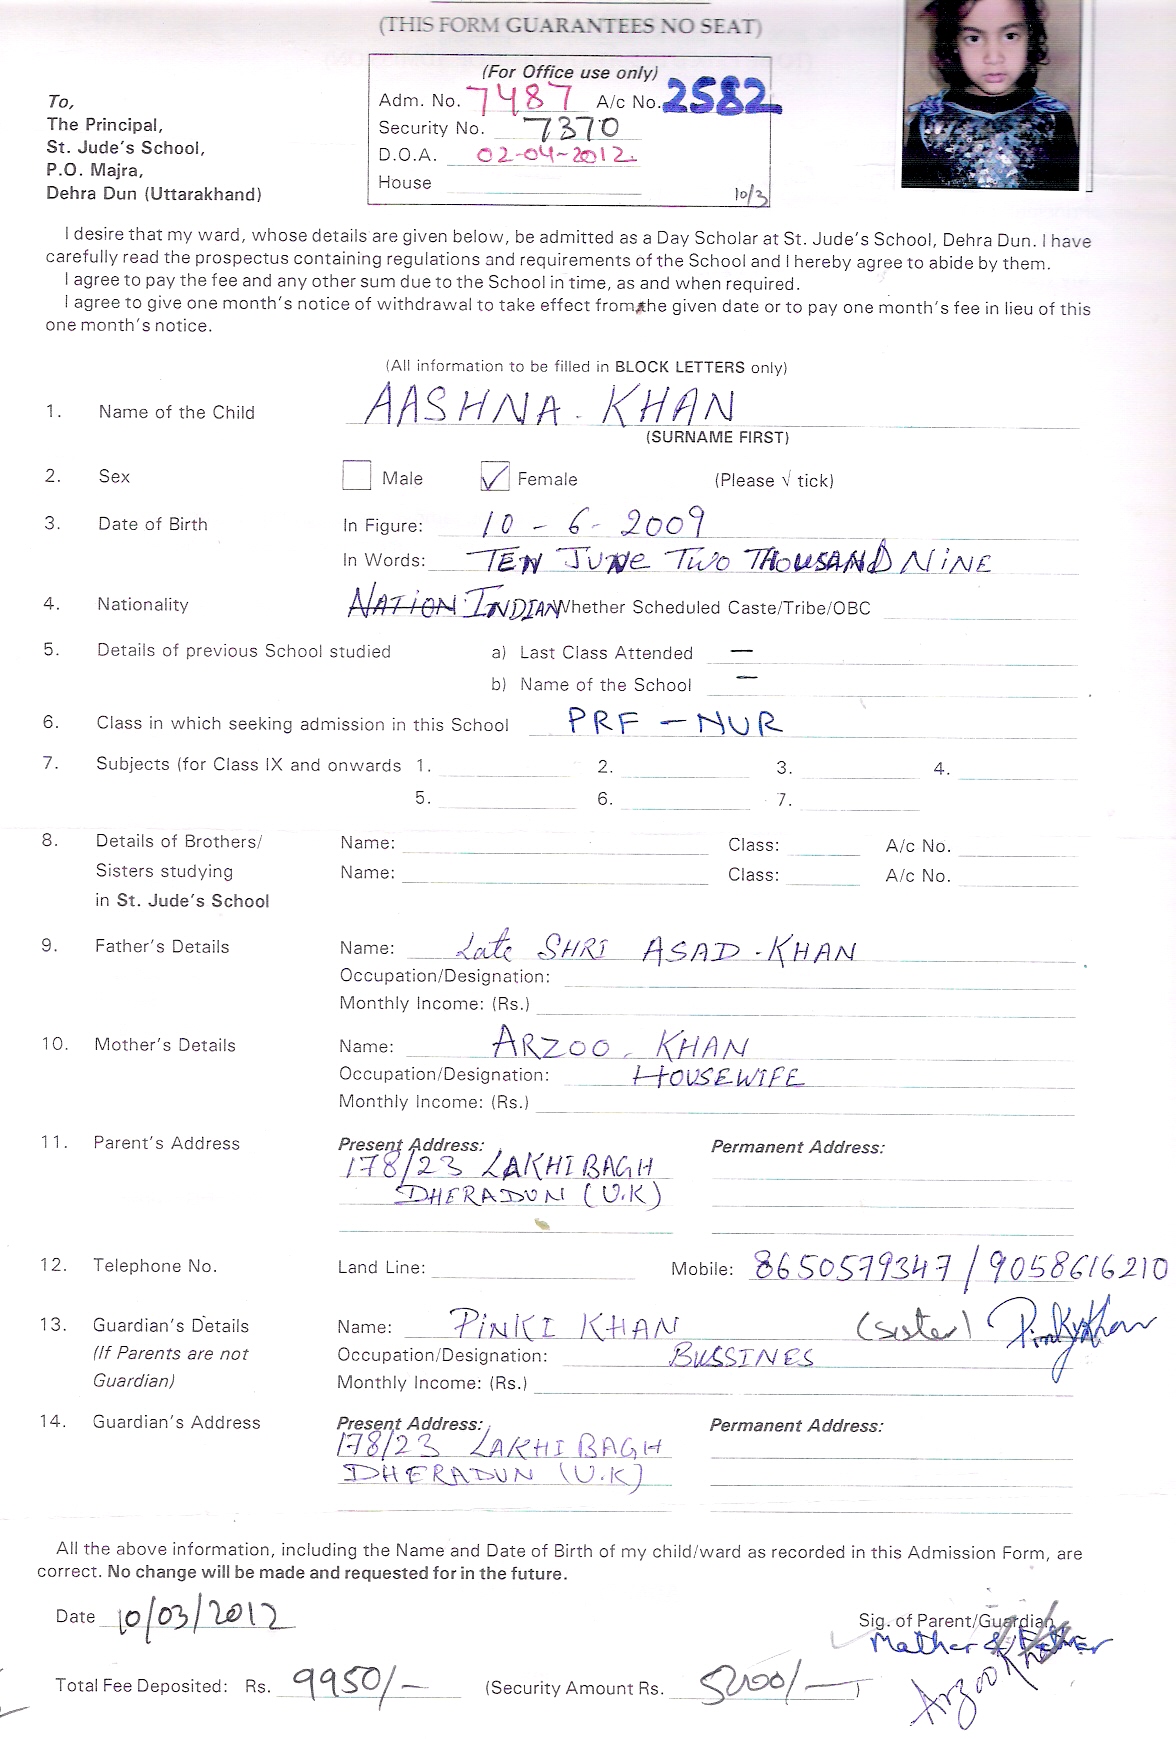 (THIS FORM GUARANTEES NO SEAT)
(For Office use only)
Adm. No. 7487 A/c No. 2582
Security No. 7370
D.O.A. 02-04-2012.
House
10/3
To,
The Principal,
St. Jude's School,
P.O. Majra,
Dehra Dun (Uttarakhand)
I desire that my ward, whose details are given below, be admitted as a Day Scholar at St. Jude's School, Dehra Dun. I have
carefully read the prospectus containing regulations and requirements of the School and I hereby agree to abide by them.
I agree to pay the fee and any other sum due to the School in time, as and when required.
I agree to give one month's notice of withdrawal to take effect from the given date or to pay one month's fee in lieu of this
one month's notice.
(All information to be filled in BLOCK LETTERS only)
1. Name of the Child AASHNA - KHAN
(SURNAME FIRST)
2. Sex Male ✓ Female (Please √ tick)
3. Date of Birth In Figure: 10 - 6 - 2009
In Words: TEN JUNe TWO THOUSAND NiNE
4. Nationality NATION INDIAN Whether Scheduled Caste/Tribe/OBC
5. Details of previous School studied a) Last Class Attended —
b) Name of the School —
6. Class in which seeking admission in this School PRF - NUR
7. Subjects (for Class IX and onwards 1. 2. 3. 4.
5. 6. 7.
8. Details of Brothers/ Name: Class: A/c No.
Sisters studying Name: Class: A/c No.
in St. Jude's School
9. Father's Details Name: Late SHRI ASAD - KHAN
Occupation/Designation:
Monthly Income: (Rs.)
10. Mother's Details Name: ARZOO - KHAN
Occupation/Designation: HOUSEWIFE
Monthly Income: (Rs.)
11. Parent's Address Present Address: Permanent Address:
178/23 LAKHI BAGH
DHERADUN (U.K)
12. Telephone No. Land Line: Mobile: 8650579347 / 9058616210
13. Guardian's Details Name: PiNKI KHAN (sister) PinkyKhan
(If Parents are not Occupation/Designation: BUSSINES
Guardian) Monthly Income: (Rs.)
14. Guardian's Address Present Address: Permanent Address:
178/23 LAKHI BAGH
DHERADUN (U.K)
All the above information, including the Name and Date of Birth of my child/ward as recorded in this Admission Form, are
correct. No change will be made and requested for in the future.
Date 10/03/2012 Sig. of Parent/Guardian
Mother & Father
Total Fee Deposited: Rs. 9950/- (Security Amount Rs. 5000/-)
Arzoo Khan